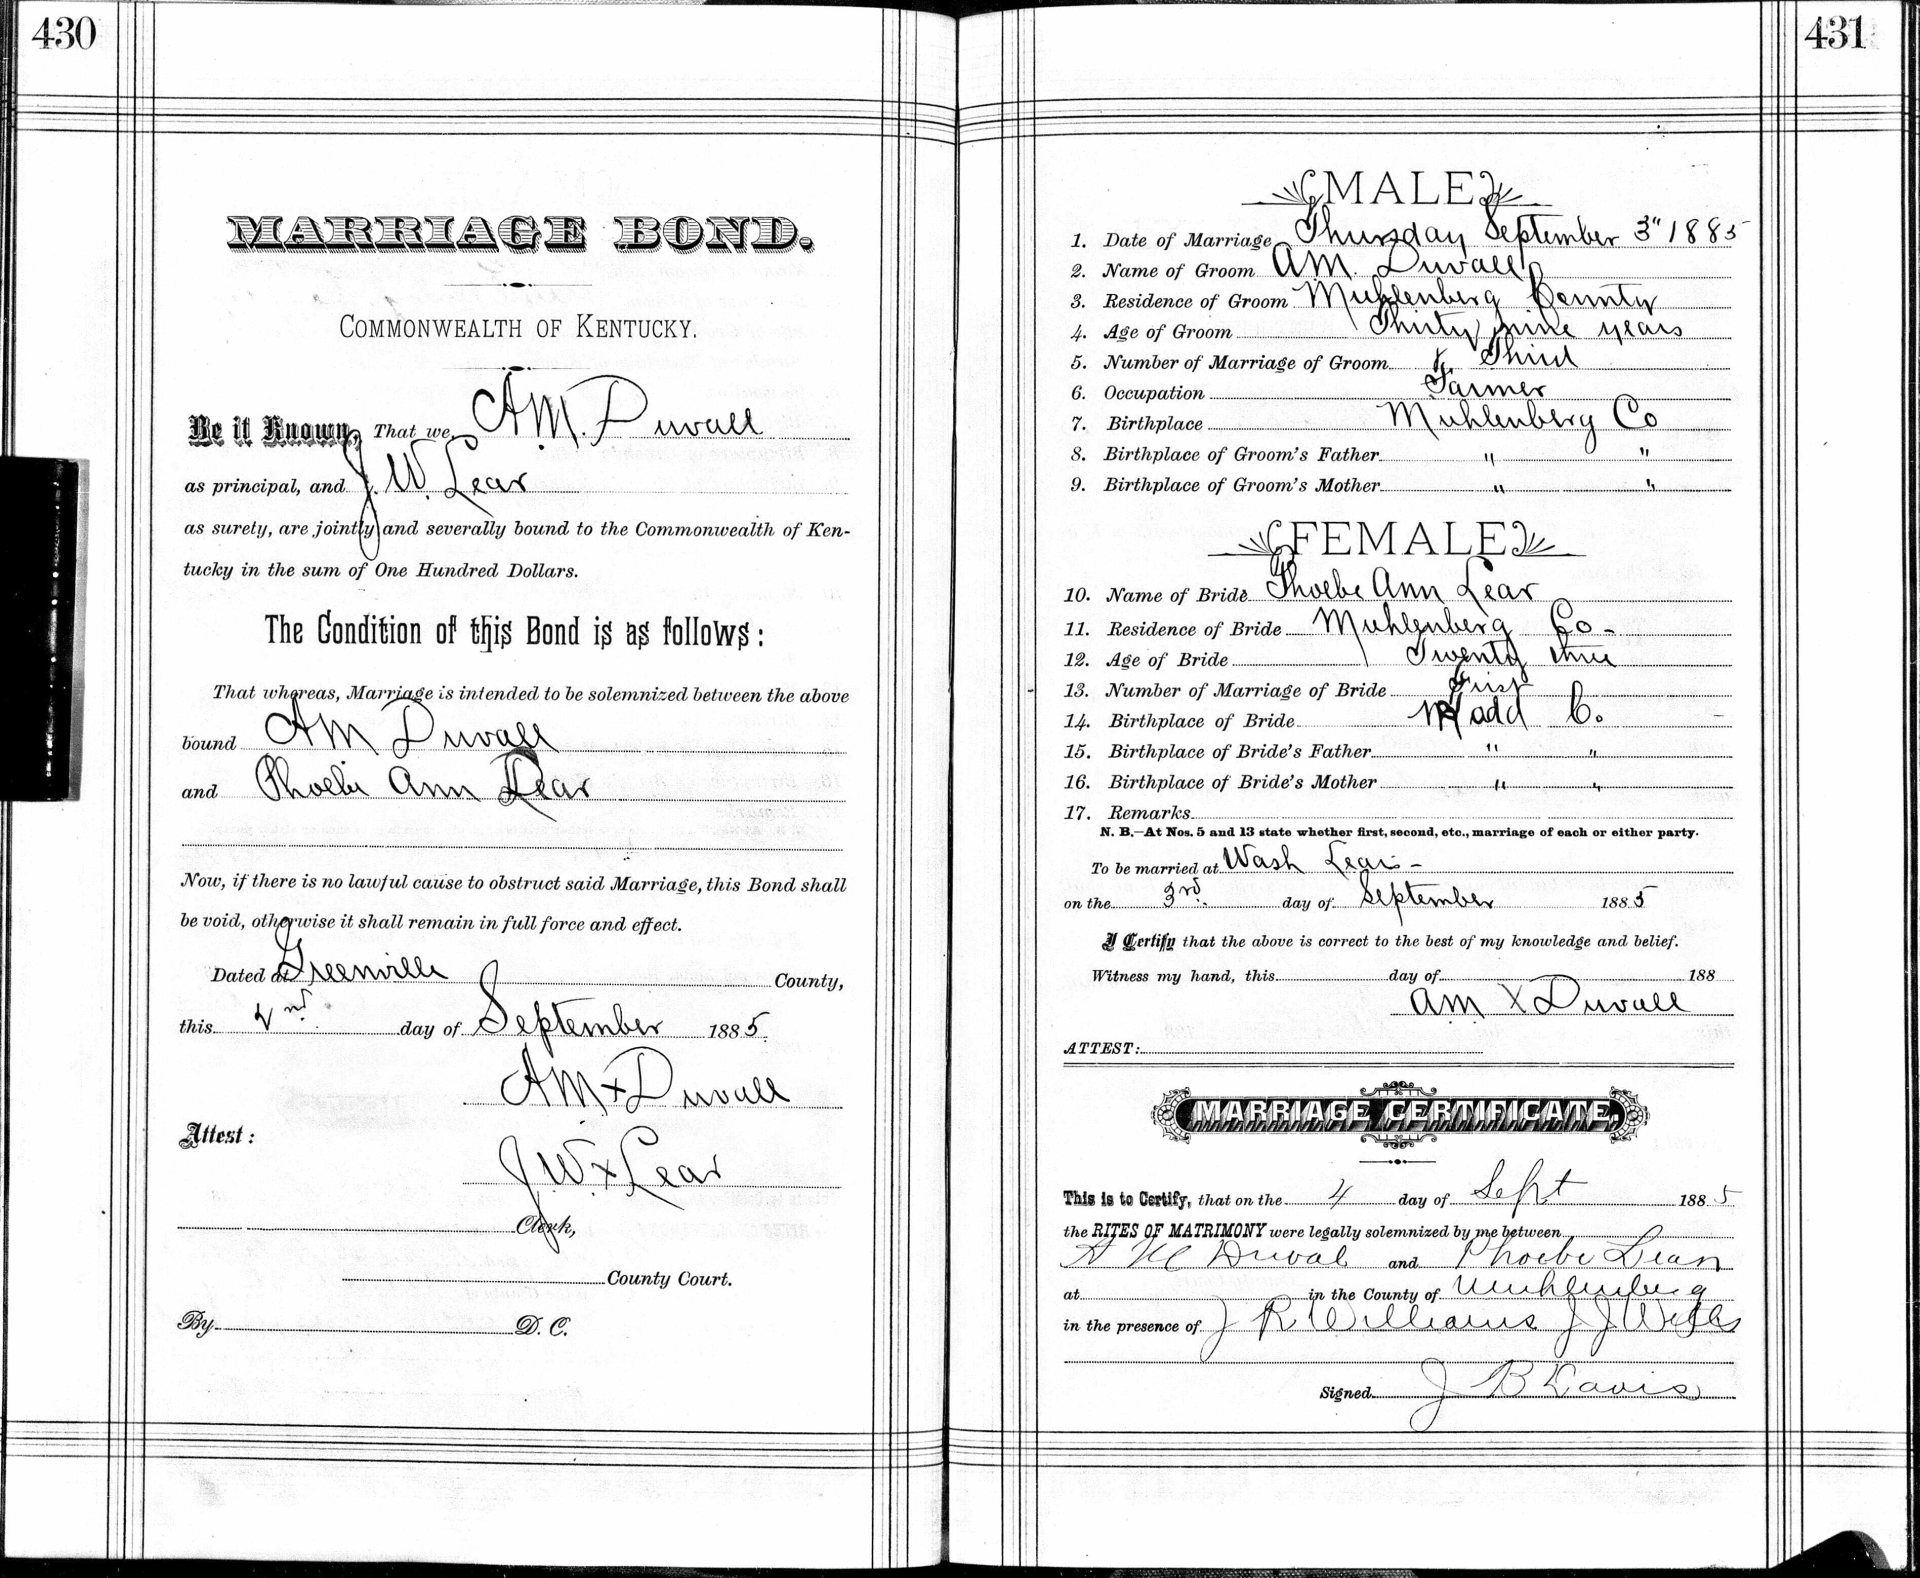 430
MARRIAGE BOND.
COMMONWEALTH OF KENTUCKY.
Be it Known, That we A M. Duvall
as principal, and J. W. Lear
as surety, are jointly and severally bound to the Commonwealth of Ken-
tucky in the sum of One Hundred Dollars.
The Condition of this Bond is as follows:
That whereas, Marriage is intended to be solemnized between the above
bound A M Duvall
and Phoebe Ann Lear
Now, if there is no lawful cause to obstruct said Marriage, this Bond shall
be void, otherwise it shall remain in full force and effect.
Dated at Greenville County,
this 2nd day of September 1885.
A M x Duvall
Attest:
J. W. x Lear
Clerk,
County Court.
By D. C.
431
MALE
1. Date of Marriage Thursday September 3" 1885
2. Name of Groom A M. Duvall
3. Residence of Groom Muhlenberg County
4. Age of Groom Thirty nine years
5. Number of Marriage of Groom Third
6. Occupation Farmer
7. Birthplace Muhlenberg Co
8. Birthplace of Groom's Father " "
9. Birthplace of Groom's Mother " "
FEMALE
10. Name of Bride Phoebe Ann Lear
11. Residence of Bride Muhlenberg Co -
12. Age of Bride Twenty three
13. Number of Marriage of Bride First
14. Birthplace of Bride Todd C.
15. Birthplace of Bride's Father " "
16. Birthplace of Bride's Mother " "
17. Remarks
N. B.—At Nos. 5 and 13 state whether first, second, etc., marriage of each or either party.
To be married at Wash Lear -
on the 3rd. day of September 1885
I Certify that the above is correct to the best of my knowledge and belief.
Witness my hand, this day of 188
A M X Duvall
ATTEST:
MARRIAGE CERTIFICATE.
This is to Certify, that on the 4 day of Sept 1885
the RITES OF MATRIMONY were legally solemnized by me between
A M Duval and Phoebe Lear
at in the County of Muhlenberg
in the presence of J R Williams J J Wells
Signed J B Davis